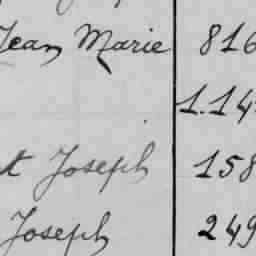 Jean Marie 816
1.14
t Joseph 158
Joseph 249